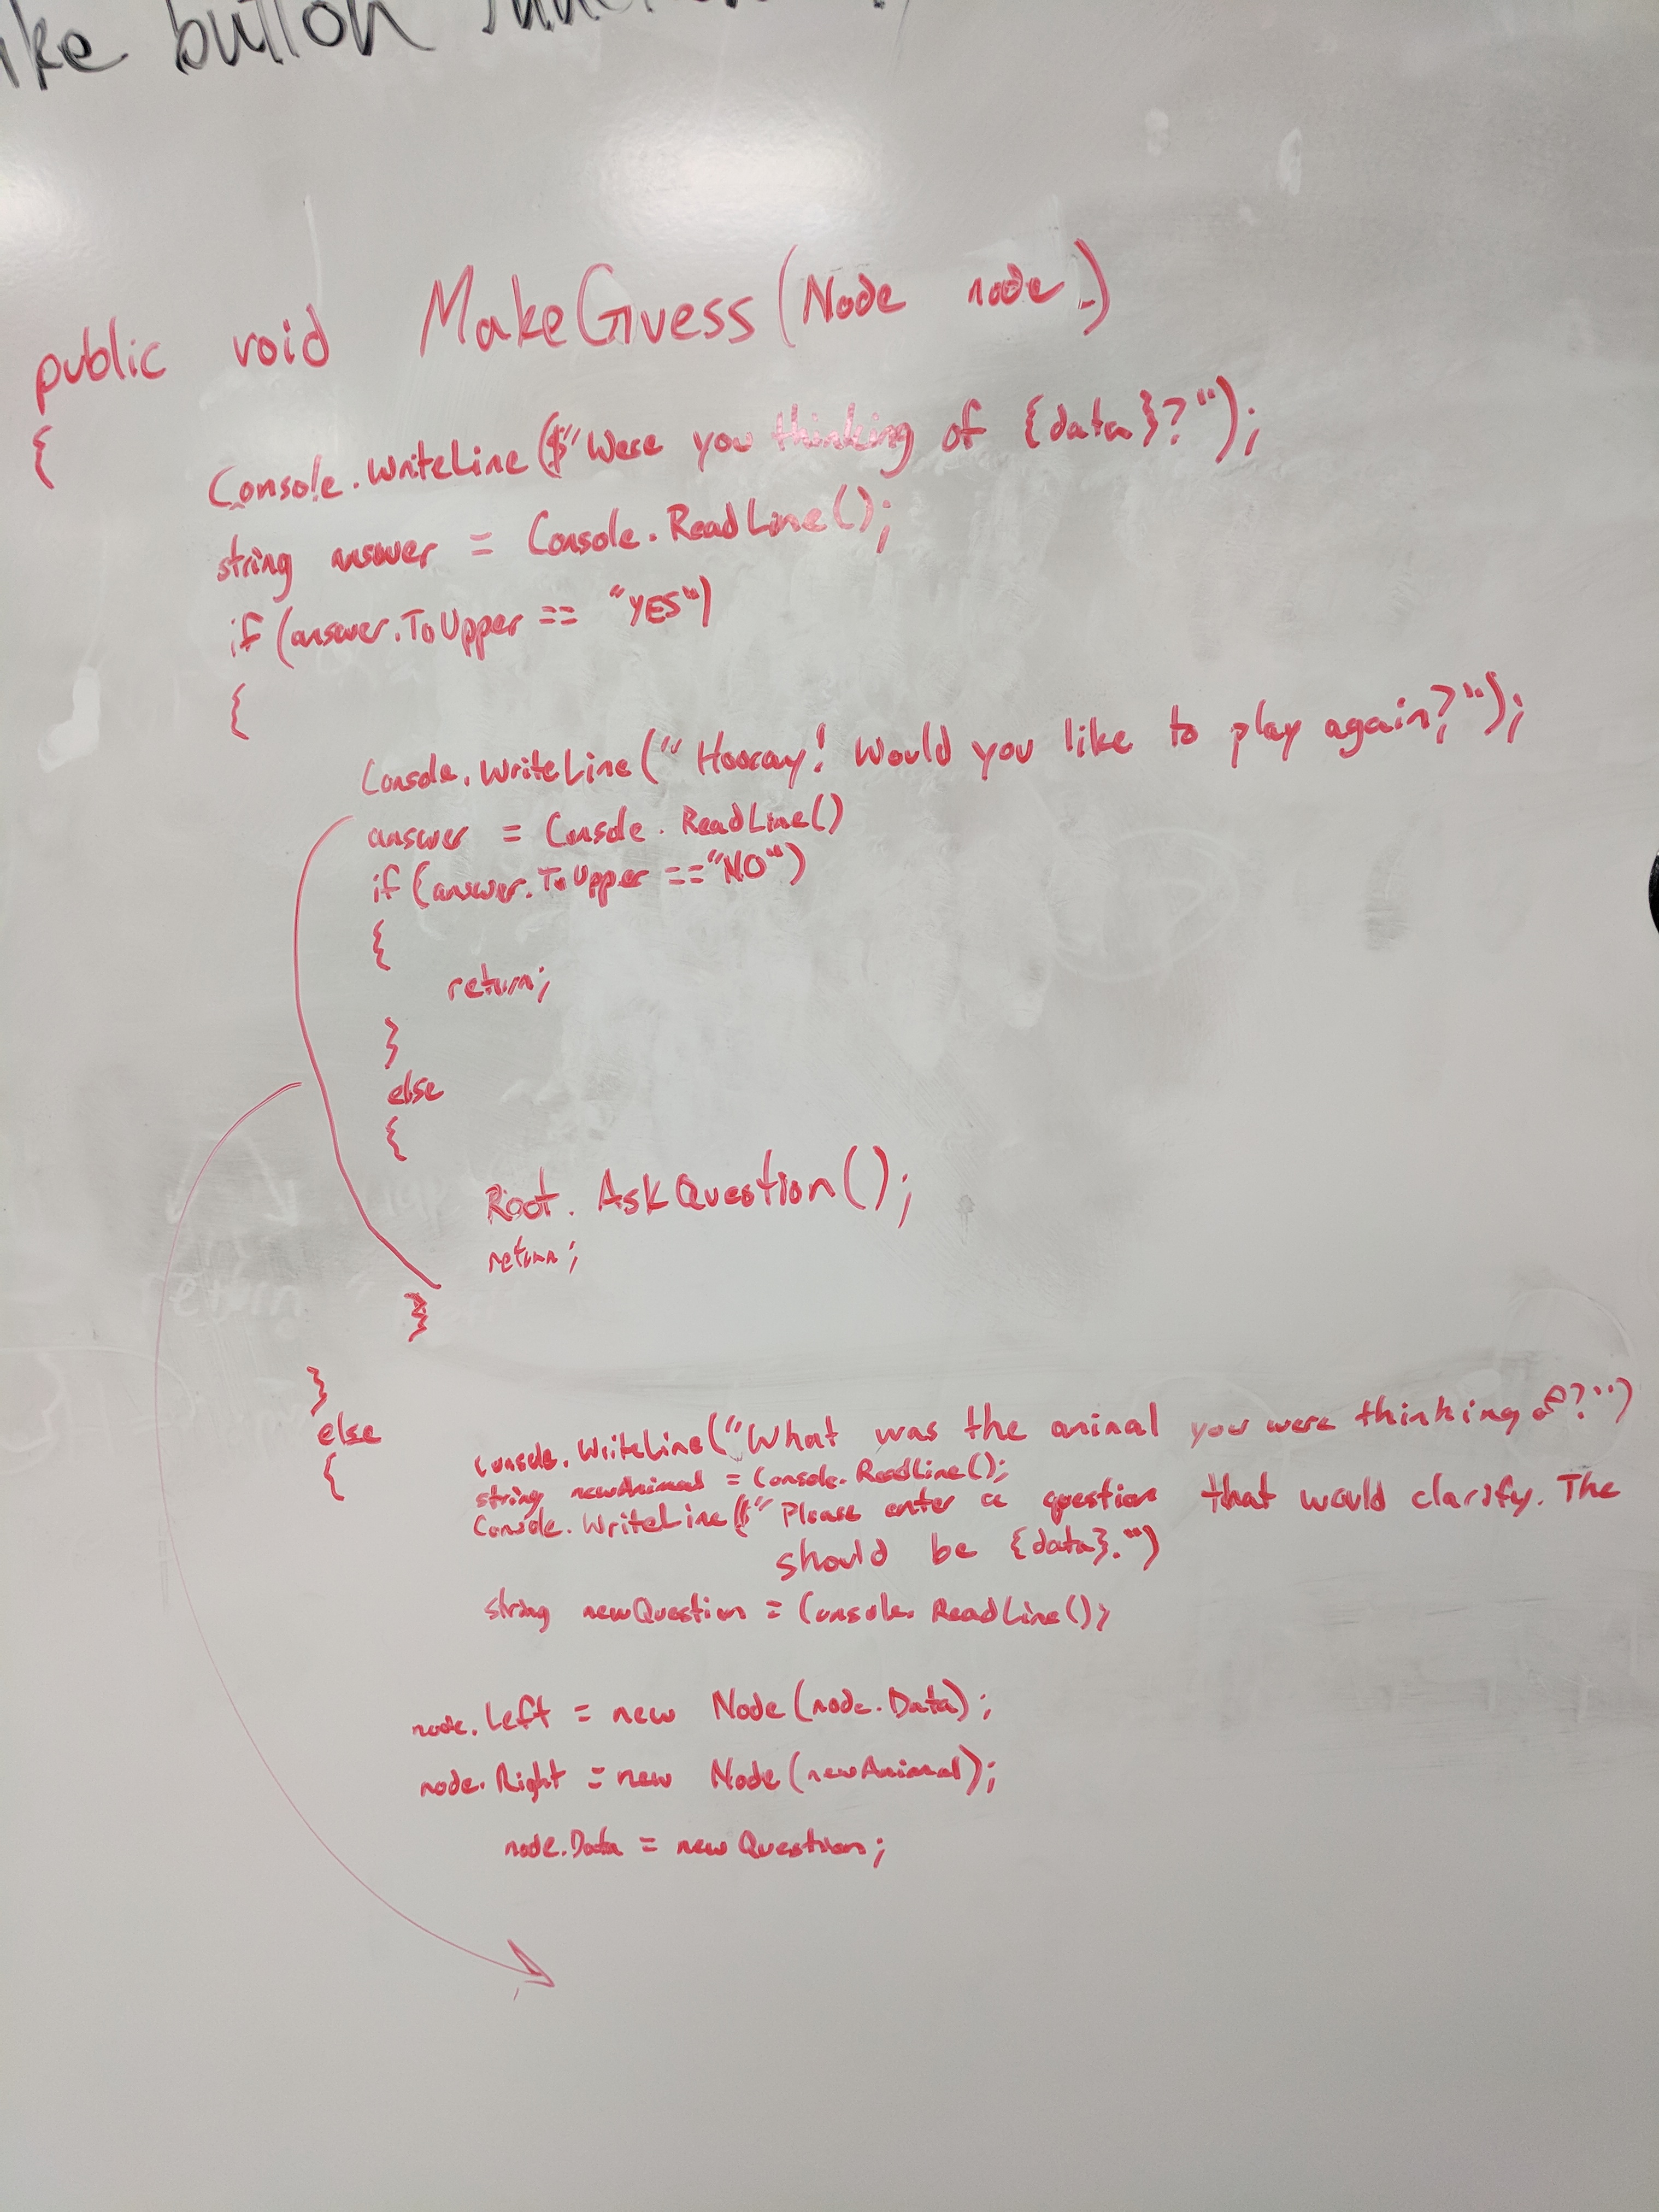 ke button
public void MakeGuess(Node node)
{
Console.WriteLine($"Were you thinking of {data}?");
string answer = Console.ReadLine();
if (answer.ToUpper == "YES")
{
Console.WriteLine("Hooray! Would you like to play again?");
answer = Console.ReadLine()
if (answer.ToUpper == "NO")
{
return;
}
else
{
Root.AskQuestion();
return;
}
}
else
{
Console.WriteLine("What was the animal you were thinking of?")
string newAnimal = Console.ReadLine();
Console.WriteLine($"Please enter a question that would clarify. The
should be {data}.")
string newQuestion = Console.ReadLine();
node.Left = new Node(node.Data);
node.Right = new Node(newAnimal);
node.Data = newQuestion;